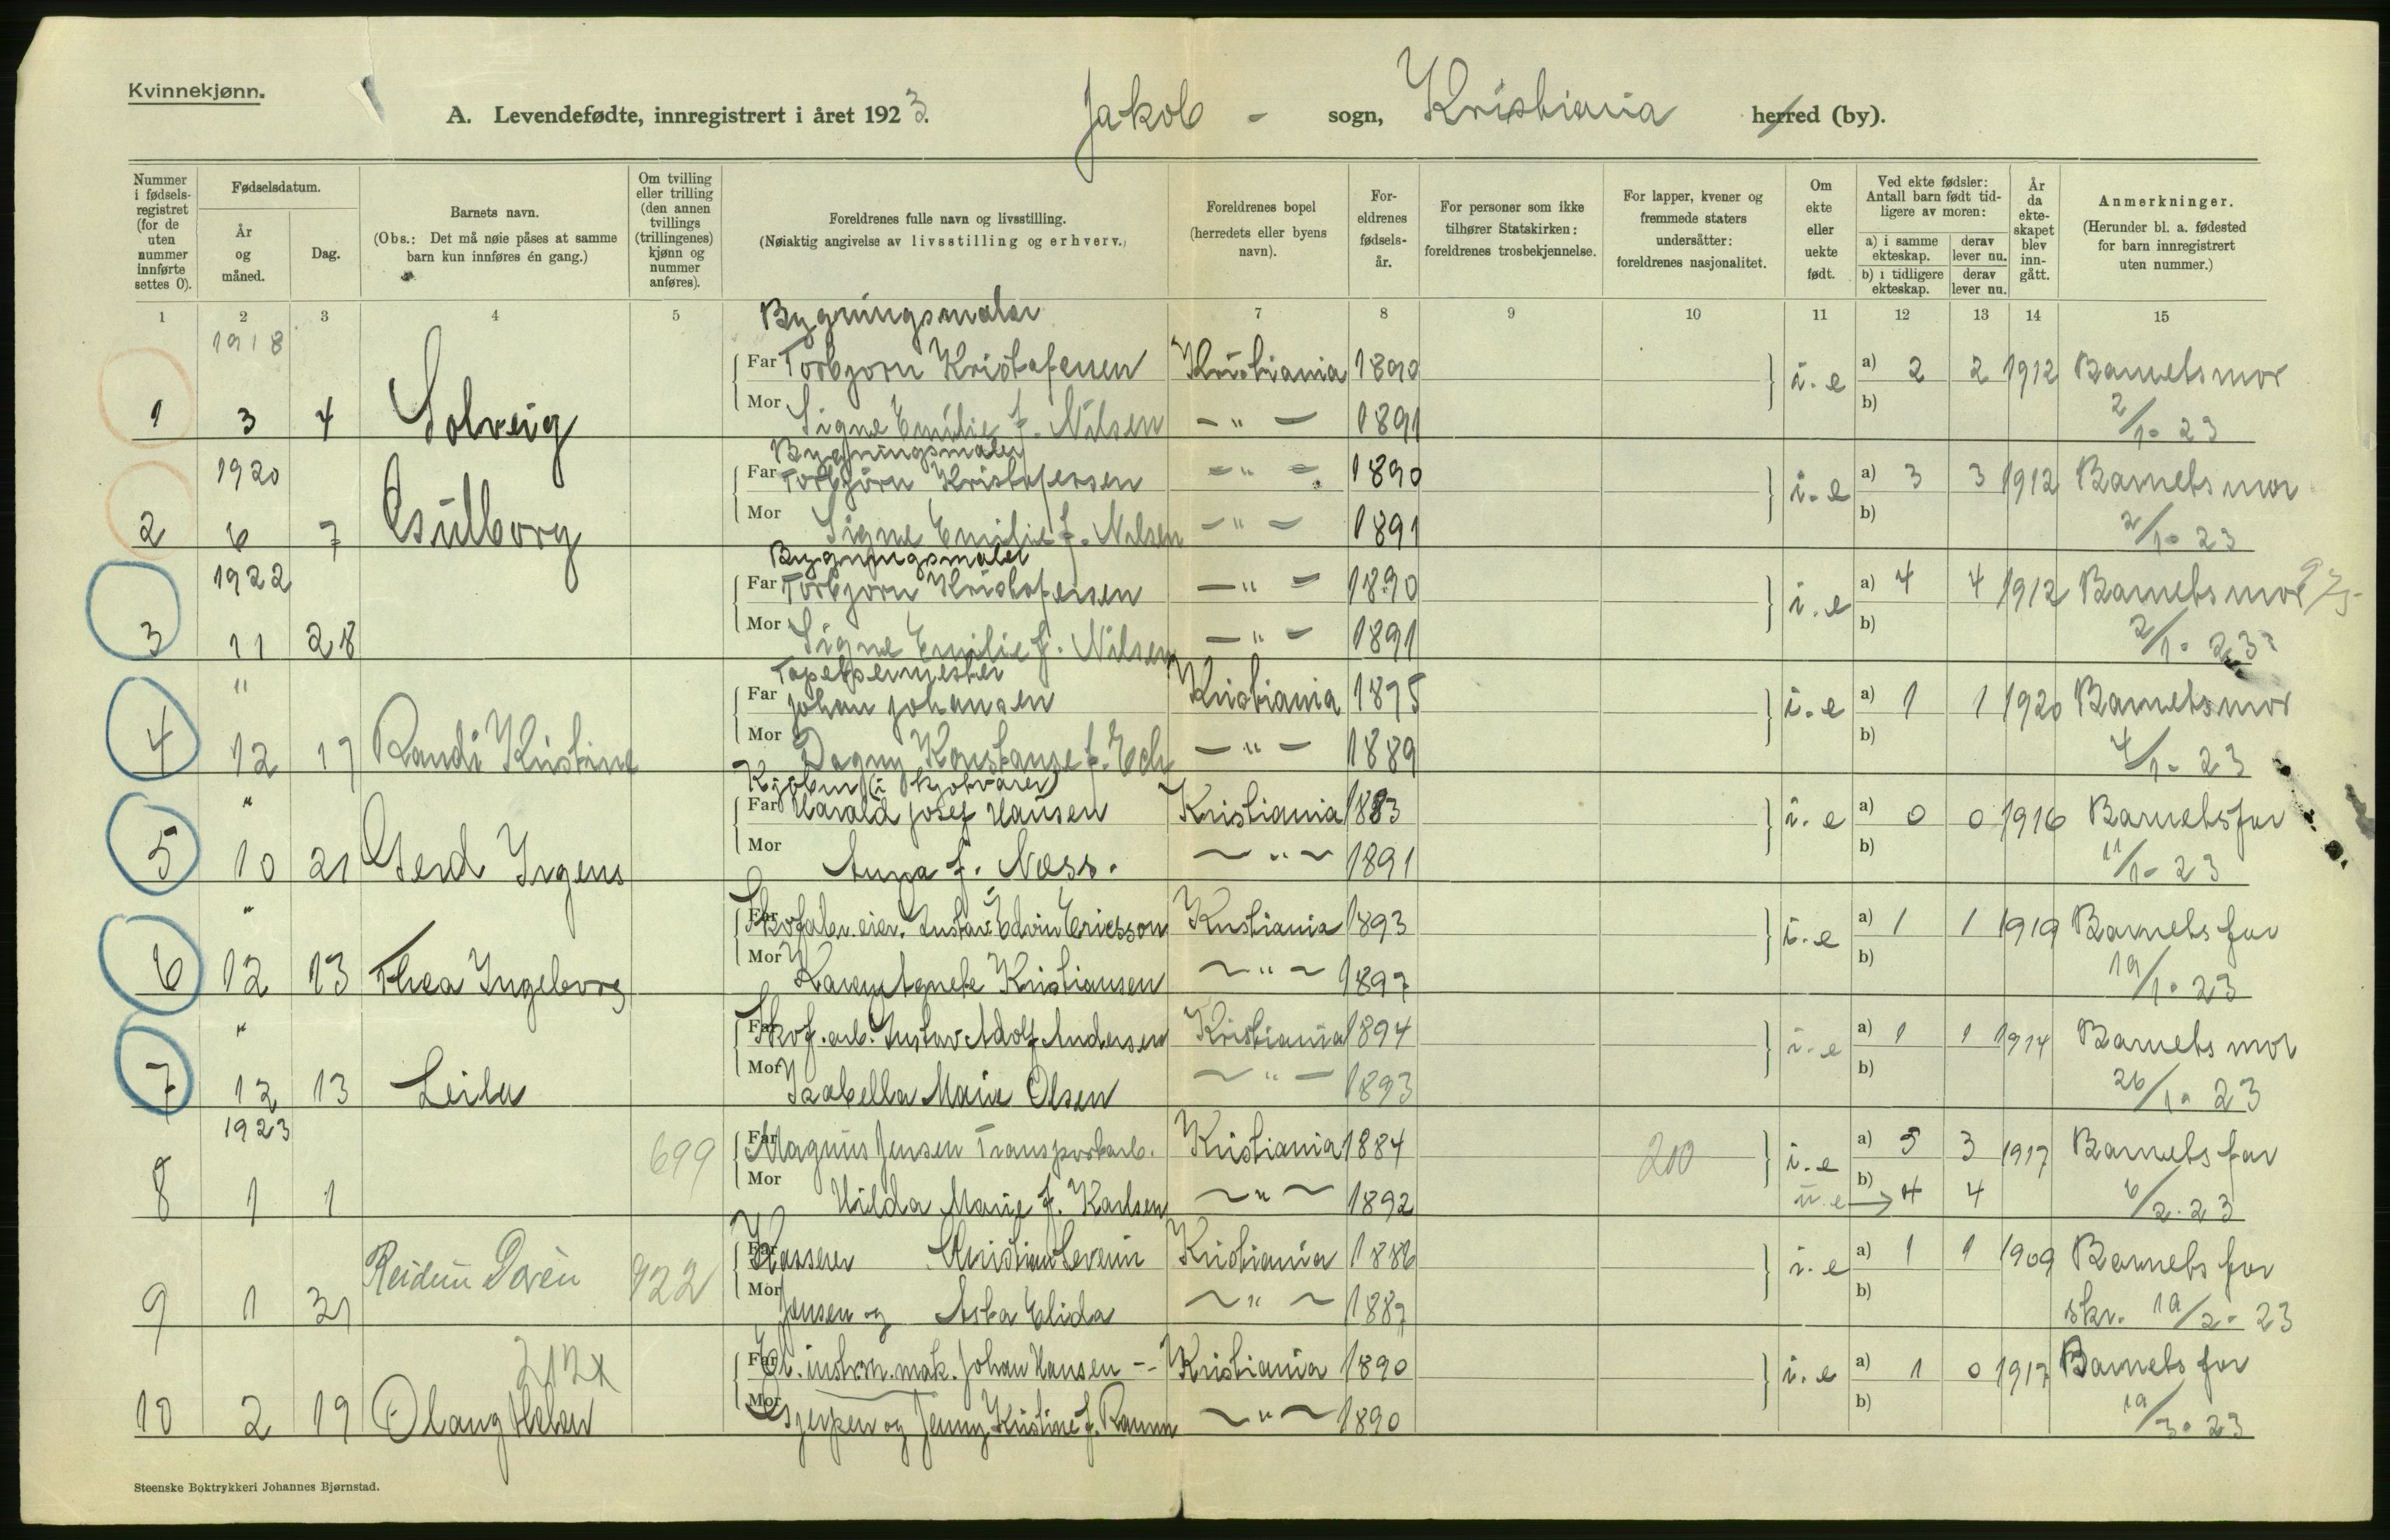 Kvinnekjønn.
A. Levendefødte, innregistrert i året 1923. Jakob - sogn, Kristiania herred (by).
Nummer i fødsels-registret (for de uten nummer innførte settes 0).
Fødselsdatum.
År og måned.
Dag.
Barnets navn.
(Obs.: Det må nøie påses at samme barn kun innføres én gang.)
Om tvilling eller trilling (den annen tvillings (trillingenes) kjønn og nummer anføres).
Foreldrenes fulle navn og livsstilling.
(Nøiaktig angivelse av livsstilling og erhverv.)
Foreldrenes bopel (herredets eller byens navn).
For-eldrenes fødsels-år.
For personer som ikke tilhører Statskirken: foreldrenes trosbekjennelse.
For lapper, kvener og fremmede staters undersåtter: foreldrenes nasjonalitet.
Om ekte eller uekte født.
Ved ekte fødsler: Antall barn født tid-ligere av moren:
a) i samme ekteskap.
derav lever nu.
b) i tidligere ekteskap.
derav lever nu.
År da ekte-skapet blev inn-gått.
Anmerkninger.
(Herunder bl. a. fødested for barn innregistrert uten nummer.)
1 2 3 4 5 7 8 9 10 11 12 13 14 15
1918 Bygningsmaler
Far Torbjorn Kristofersen Kristiania 1890 i. e a) 2 2 1912 Barnets mor
1 3 4 Solveig Mor Signe Emilie f. Nilsen - " - 1891 b) 2/1- 23
1920 Bygningsmaler
Far Torbjörn Kristofersen - " - 1890 i. e a) 3 3 1912 Barnets mor
2 6 7 Mor Signe Emilie f. Nilsen - " - 1891 b) 2/1- 23
1922 Bygningsmaler
Far Torbjorn Kristofersen - " - 1890 i. e a) 4 4 1912 Barnets mor
3 11 28 Mor Signe Emilie f. Nilsen - " - 1891 b) 2/1- 23
" Tapetsermester
Far Johan Johansen Kristiania 1875 i. e a) 1 1 1920 Barnets mor
4 12 17 Randi Kristine Mor Dagny Konstanse f. Ech - " - 1889 b) 4/1- 23
" Kjøbm (i kjøtvarer)
Far Harald Josef Hansen Kristiania 1883 i. e a) 0 0 1916 Barnets far
5 10 21 Gerd Irgens Mor Anna f. Næss. - " - 1891 b) 11/1- 23
" Far Skofabr. eier. Gustav Edvin Ericsson Kristiania 1893 i. e a) 1 1 1919 Barnets far
6 12 13 Thea Ingeborg Mor Karen Agnete Kristiansen - " - 1897 b) 19/1- 23
" Far Skof. arb. Gustav Adolf Andersen Kristiania 1894 i. e a) 1 1 1914 Barnets mor
7 12 13 Leila Mor Isabella Marie Olsen - " - 1893 b) 26/1- 23
1923 699 Far Magnus Jensen Transportarb. Kristiania 1884 200 i. e a) 5 3 1917 Barnets far
8 1 1 Mor Hilda Marie f. Karlsen - " - 1892 u. e → b) 4 4 6/2. 23
Reidun Doren 922 Far Kasserer Kristian Severin Kristiania 1886 i. e a) 1 1 1909 Barnets far
9 1 31 Mor Jensen og Asta Elida - " - 1887 b) skr. 19/2- 23
212x Far El. instrm. mak. Johan Hansen -- Kristiania 1890 i. e a) 1 0 1917 Barnets far
10 2 19 Olaug Helen Mor Gjerpen og Jenny Kristine f. Ramm - " - 1890 b) 19/3- 23
Steenske Boktrykkeri Johannes Bjørnstad.